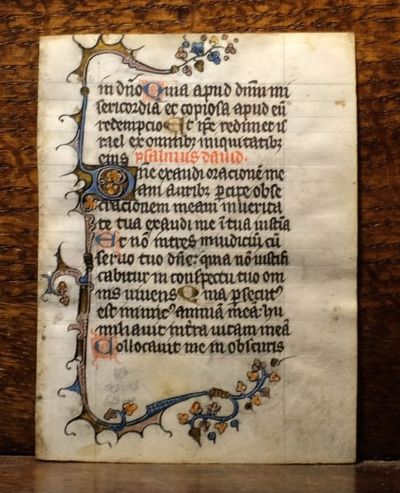 in dño Quia apud dñm mi
sericordia et copiosa apud eũ
redempcio Et ip̃e redimet is
rael ex omnibꝫ iniquitatibꝫ
eius psalmus dauid.
Dñe exaudi oracionem me
am auribꝫ percipe obse
cracionem meam in uerita
te tua exaudi me ĩ tua iusticia
Et nõ intres in iudiciũ cũ
seruo tuo dñe: quia nõ iustifi
cabitur in conspectu tuo om
nis uiuens Quia persecut᷒
est inimic᷒ animã meã: hu
miliauit in terra uitam meã
Collocauit me in obscuris